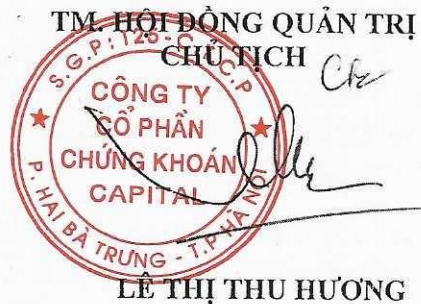 TM. HỘI ĐỒNG QUẢN TRỊ
CHỦ TỊCH
S.G.P: 125
C.P
CÔNG TY
CỔ PHẦN
CHỨNG KHOÁN
CAPITAL
P. HAI BÀ TRƯNG - T.P HÀ NỘI
LÊ THỊ THU HƯƠNG